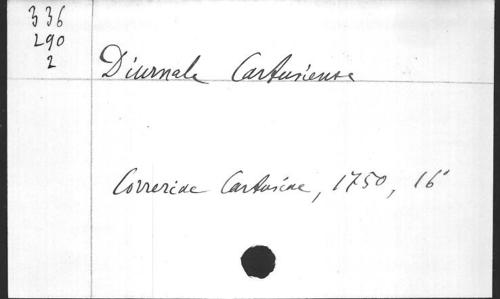 336
290
2
Diurnale Cartusiense
Correriae Cartusiae, 1750, 16°